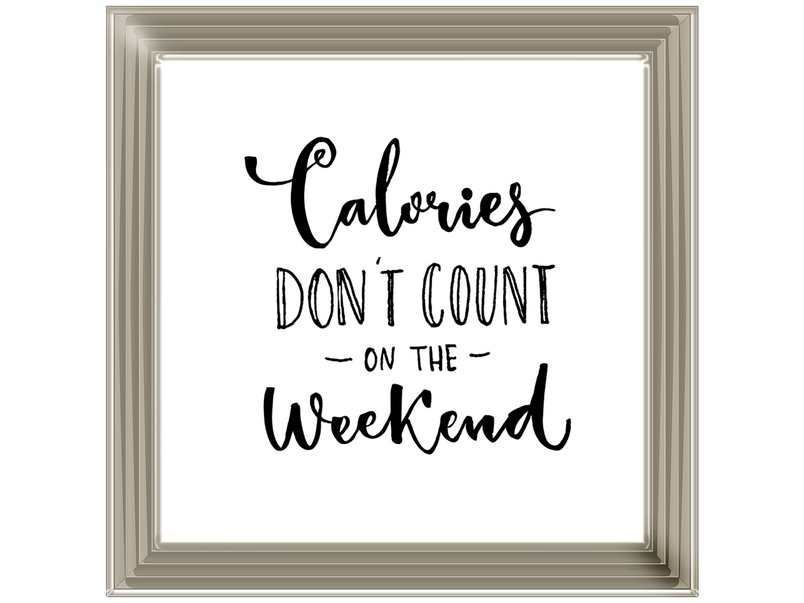 Calories
DON'T COUNT
- ON THE -
Weekend